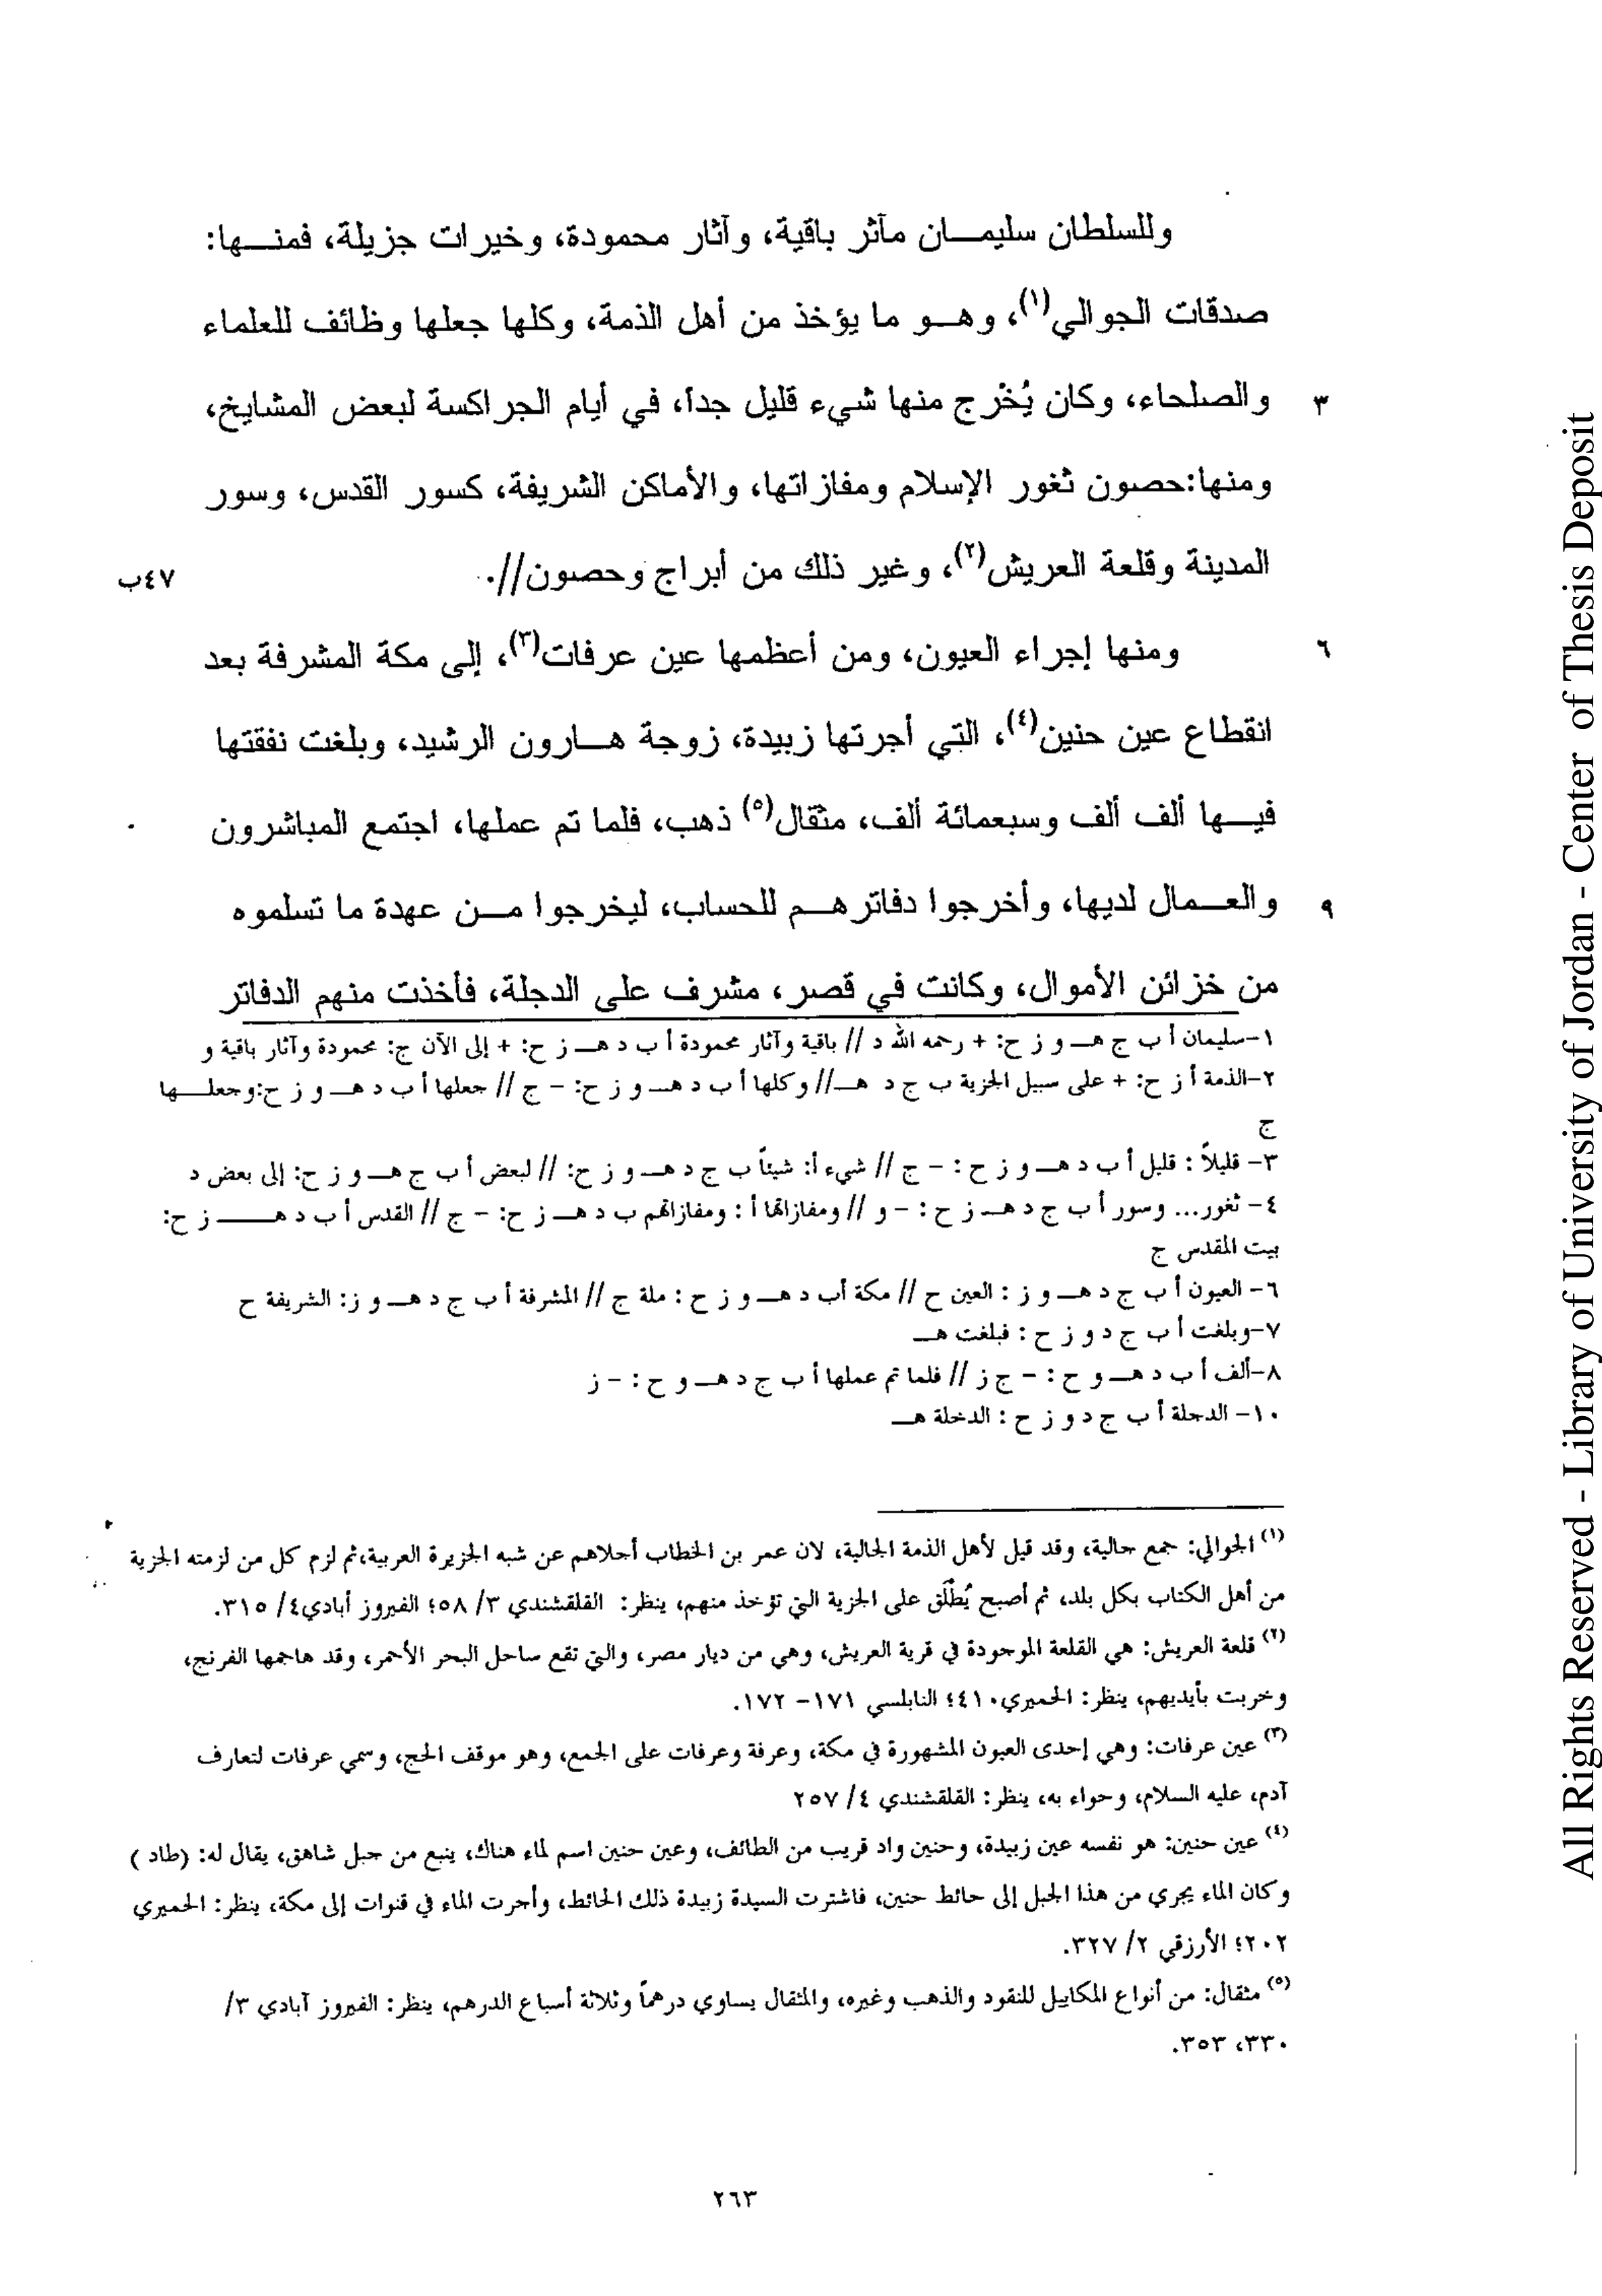 وللسلطان سليمـــان مآثر باقية، وآثار محمودة، وخيرات جزيلة، فمنـــها:
صدقات الجوالي(١)، وهـــو ما يؤخذ من أهل الذمة، وكلها جعلها وظائف للعلماء
٣ والصلحاء، وكان يُخْرج منها شيء قليل جداً، في أيام الجراكسة لبعض المشايخ،
ومنها:حصون ثغور الإسلام ومفازاتها، والأماكن الشريفة، كسور القدس، وسور
المدينة وقلعة العريش(٢)، وغير ذلك من أبراج وحصون//. ٤٧ب
٦ ومنها إجراء العيون، ومن أعظمها عين عرفات(٣)، إلى مكة المشرفة بعد
انقطاع عين حنين(٤)، التي أجرتها زبيدة، زوجة هـــارون الرشيد، وبلغت نفقتها
فيـــها ألف ألف وسبعمائة ألف، مثقال(٥) ذهب، فلما تم عملها، اجتمع المباشرون
٩ والعـــمال لديها، وأخرجوا دفاترهـــم للحساب، ليخرجوا مـــن عهدة ما تسلموه
من خزائن الأموال، وكانت في قصر، مشرف على الدجلة، فأخذت منهم الدفاتر
١-سليمان أ ب ج هـــ و ز ح: + رحمه الله د // باقية وآثار محمودة أ ب د هـــ ز ح: + إلى الآن ج: محمودة وآثار باقية و
٢-الذمة أ ز ح: + على سبيل الجزية ب ج د هـــ// وكلها أ ب د هـــ و ز ح: - ج // جعلها أ ب د هـــ و ز ح:وجعلـــها
ج
٣- قليلاً : قليل أ ب د هـــ و ز ح : - ج // شيء أ: شيئاً ب ج د هـــ و ز ح: // لبعض أ ب ج هـــ و ز ح: إلى بعض د
٤- ثغور... وسور أ ب ج د هـــ ز ح : - و // ومفازاتها أ : ومفازاتهم ب د هـــ ز ح: - ج // القدس أ ب د هـــ ز ح:
بيت المقدس ج
٦- العيون أ ب ج د هـــ و ز : العين ح // مكة أب د هـــ و ز ح : ملة ج // المشرفة أ ب ج د هـــ و ز: الشريفة ح
٧-وبلغت أ ب ج د و ز ح : فبلغت هـــ
٨-ألف أ ب د هـــ و ح : - ج ز // فلما تم عملها أ ب ج د هـــ و ح : - ز
١٠- الدجلة أ ب ج د و ز ح : الدخلة هـــ
(١) الجوالي: جمع جالية، وقد قيل لأهل الذمة الجالية، لان عمر بن الخطاب أجلاهم عن شبه الجزيرة العربية،ثم لزم كل من لزمته الجزية
من أهل الكتاب بكل بلد، ثم أصبح يُطْلَق على الجزية التي تؤخذ منهم، ينظر: القلقشندي ٣/ ٥٨؛ الفيروز أبادي٤/ ٣١٥.
(٢) قلعة العريش: هي القلعة الموجودة في قرية العريش، وهي من ديار مصر، والتي تقع ساحل البحر الأحمر، وقد هاجمها الفرنج،
وخربت بأيديهم، ينظر: الحميري٤١٠؛ النابلسي ١٧١- ١٧٢.
(٣) عين عرفات: وهي إحدى العيون المشهورة في مكة، وعرفة وعرفات على الجمع، وهو موقف الحج، وسمي عرفات لتعارف
آدم، عليه السلام، وحواء به، ينظر: القلقشندي ٤/ ٢٥٧
(٤) عين حنين: هو نفسه عين زبيدة، وحنين واد قريب من الطائف، وعين حنين اسم لماء هناك، ينبع من جبل شاهق، يقال له: (طاد )
وكان الماء يجري من هذا الجبل إلى حائط حنين، فاشترت السيدة زبيدة ذلك الحائط، وأجرت الماء في قنوات إلى مكة، ينظر: الحميري
٢٠٢؛ الأرزقي ٢/ ٣٢٧.
(٥) مثقال: من أنواع المكاييل للنقود والذهب وغيره، والمثقال يساوي درهماً وثلاثة أسباع الدرهم، ينظر: الفيروز آبادي ٣/
٣٣٠، ٣٥٣.
٢٦٣
All Rights Reserved - Library of University of Jordan - Center of Thesis Deposit